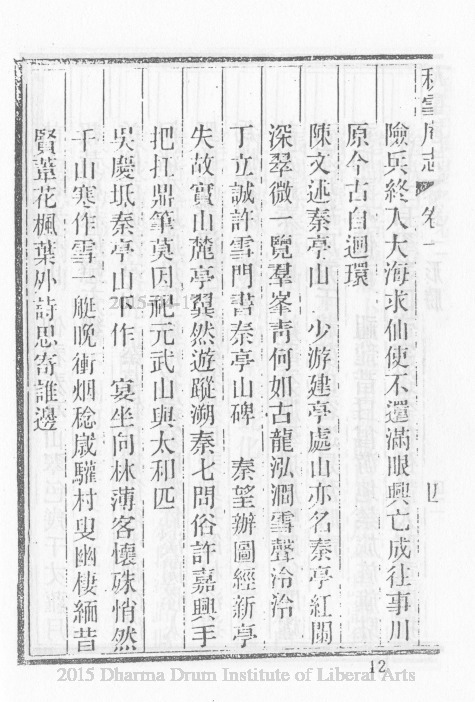 秋雪庵志 卷一 形勝 四
險兵終入大海求仙使不還滿眼興亡成往事川
原今古自迴環
陳文述秦亭山 少游建亭處山亦名秦亭紅闌
深翠微一覽羣峯靑何如古龍泓澗雪聲泠泠
丁立誠許雪門書秦亭山碑 秦望辦圖經新亭
失故實山麓亭翼然遊蹤溯秦七問俗許嘉興手
把扛鼎筆莫因祀元武山與太和匹
吳慶坻秦亭山下作 宴坐向林薄客懷殊悄然
千山寒作雪一艇晚衝烟稔歲驩村叟幽棲緬昔
賢葦花楓葉外詩思寄誰邊
12
2015 Dharma Drum Institute of Liberal Arts